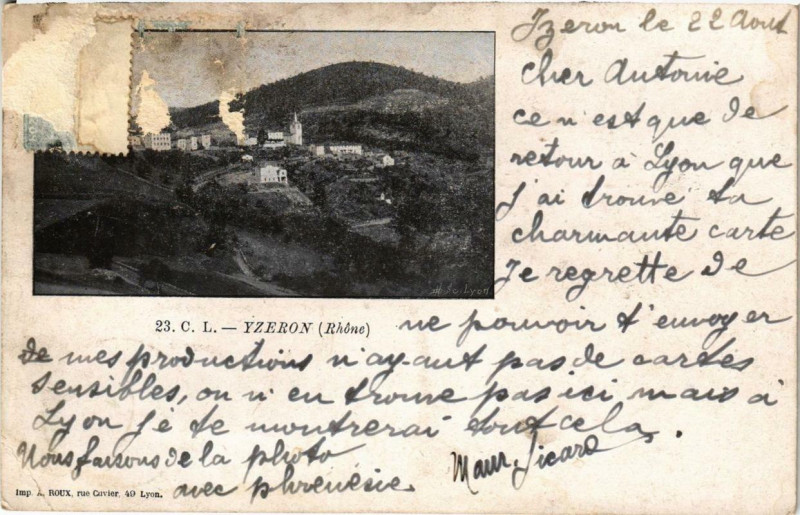 Yzeron le 22 Aout
Cher Antoine
ce n'est que de
retour à Lyon que
j'ai trouvé ta
charmante carte
Je regrette de
23. C. L. — YZERON (Rhône)
ne pouvoir t'envoyer
de mes productions n'ayant pas de cartes
sensibles, on n'en trouve pas ici, mais à
Lyon je te montrerai tout cela.
Nous faisons de la photo
avec phrénésie.
Maur. Sicard
Imp. A. ROUX, rue Cuvier, 49 Lyon.